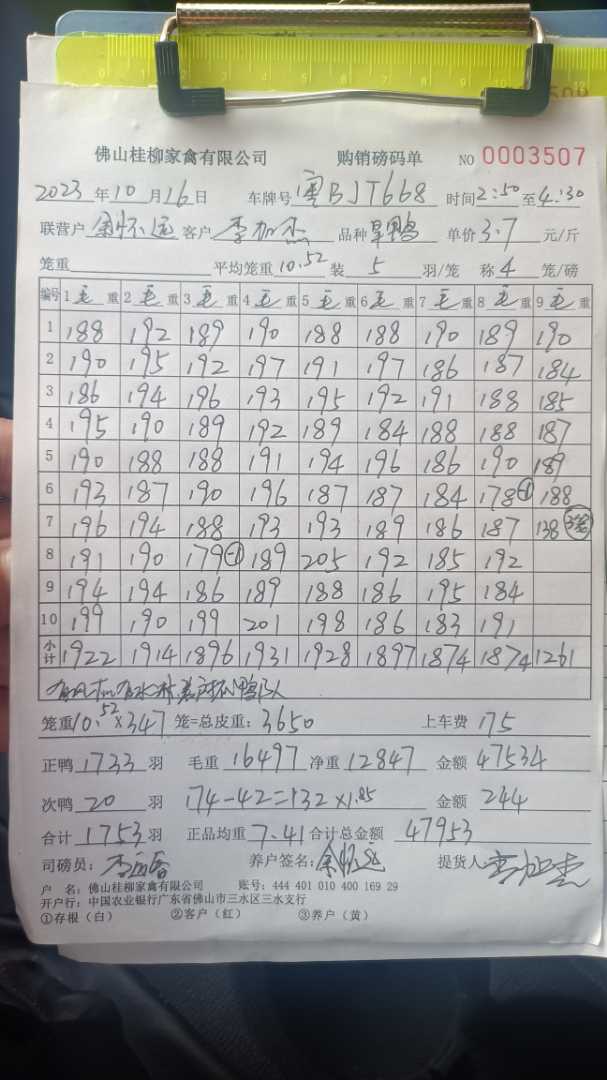 佛山桂柳家禽有限公司 购销磅码单 NO 0003507
2023年10月16日 车牌号 粤BJT668 时间2:50至4:30
联营户 余怀远 客户 李加杰 品种 旱鸭 单价 3.7 元/斤
笼重 平均笼重10.52装 5 羽/笼 称 4 笼/磅
编号 1毛重 2毛重 3毛重 4毛重 5毛重 6毛重 7毛重 8毛重 9毛重
1 188 192 189 190 188 188 190 189 190
2 190 195 192 197 191 197 186 187 184
3 186 194 196 193 195 192 191 188 185
4 195 190 189 192 189 184 188 188 187
5 190 188 188 191 194 196 186 190 189
6 193 187 190 196 187 187 184 178 -1 188
7 196 194 188 193 193 189 186 187 138 3笼
8 191 190 179 -1 189 205 192 185 192
9 194 194 186 189 188 186 195 184
10 199 190 199 201 198 186 183 191
小计 1922 1914 1896 1931 1928 1897 1874 1874 1261
笼重10.52×347 笼=总皮重:3650 上车费 175
正鸭 1733 羽 毛重 16497 净重 12847 金额 47534
次鸭 20 羽 174-42=132×1.85 金额 244
合计 1753 羽 正品均重 7.41 合计总金额 47953
司磅员: 养户签名:余怀远 提货人 李加杰
户 名:佛山桂柳家禽有限公司 账号:444 401 010 400 169 29
开户行:中国农业银行广东省佛山市三水区三水支行
①存根(白) ②客户(红) ③养户(黄)